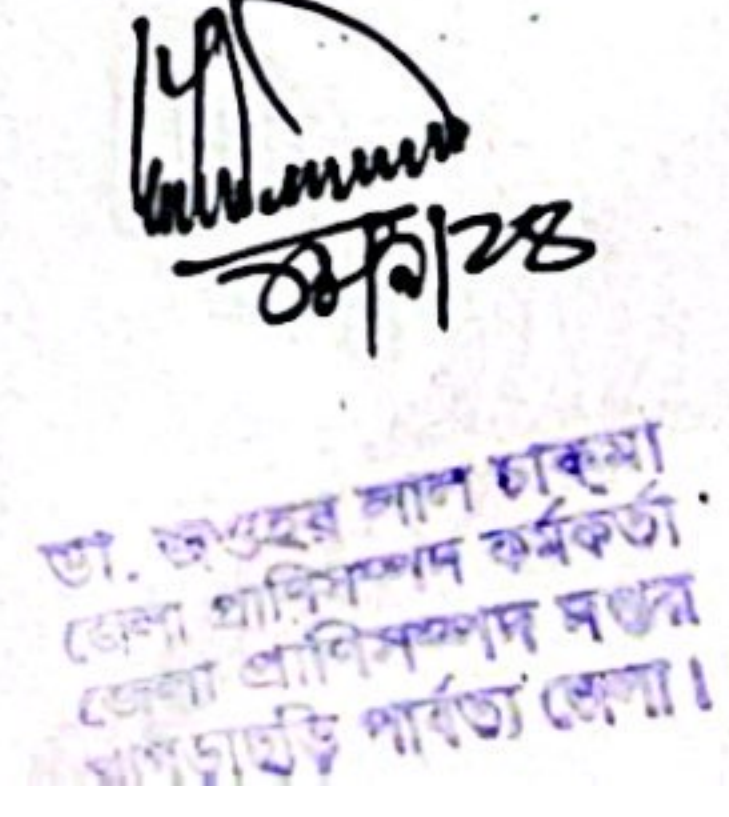 ডা. জওহর লাল চাকমা
জেলা প্রাণিসম্পদ কর্মকর্তা
জেলা প্রাণিসম্পদ দপ্তর
খাগড়াছড়ি পার্বত্য জেলা।